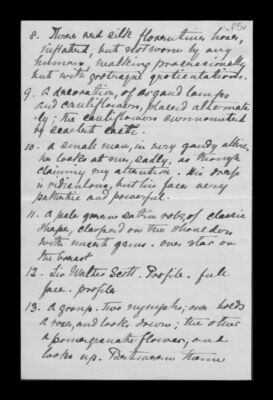 P5v
8. Three red silk florentine hose,
inflated, but not worn by any
human, walking processionally
but with grotesque gesticulations.
9. A decoration, of Argand lamps
and cauliflowers, placed alternate-
ly; the cauliflowers surmounted
by scarlet
10. a small man, in very gaudy attire.
he looks at me, sadly, as though
claiming my attention. His dress
is ridiculous, but his face very
pathetic and powerful.
11. A pale green satin robe, of classic
shape, clasped on the shoulders
with uncut gems. one star on
the breast
12. Sir Walter Scott. Profile. full
face. profile
13. A group. Two nymphs; one holds
a rose, and looks down; the other
a pomegranate flower, and
looks up. Between them